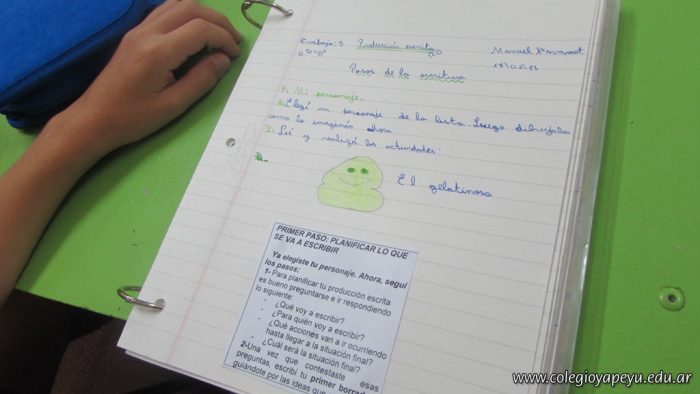 Trabajo: 5 Producción escrita Manuel
Pasos de la escritura
1) Mi personaje.
Elegí un personaje de la lista luego dibujalo
como lo imaginás ahora
2) Leé y realizá las actividades:
El gelatinoso
PRIMER PASO: PLANIFICAR LO QUE
SE VA A ESCRIBIR
Ya elegiste tu personaje. Ahora, seguí
los pasos:
1- Para planificar tu producción escrita
es bueno preguntarse e ir respondiendo
lo siguiente:
- ¿Qué voy a escribir?
- ¿Para quién voy a escribir?
- ¿Qué acciones van a ir ocurriendo
hasta llegar a la situación final?
- ¿Cuál será la situación final?
2-Una vez que contestaste esas
preguntas, escribí tu primer borrador
guiándote por las ideas que
www.colegioyapeyu.edu.ar